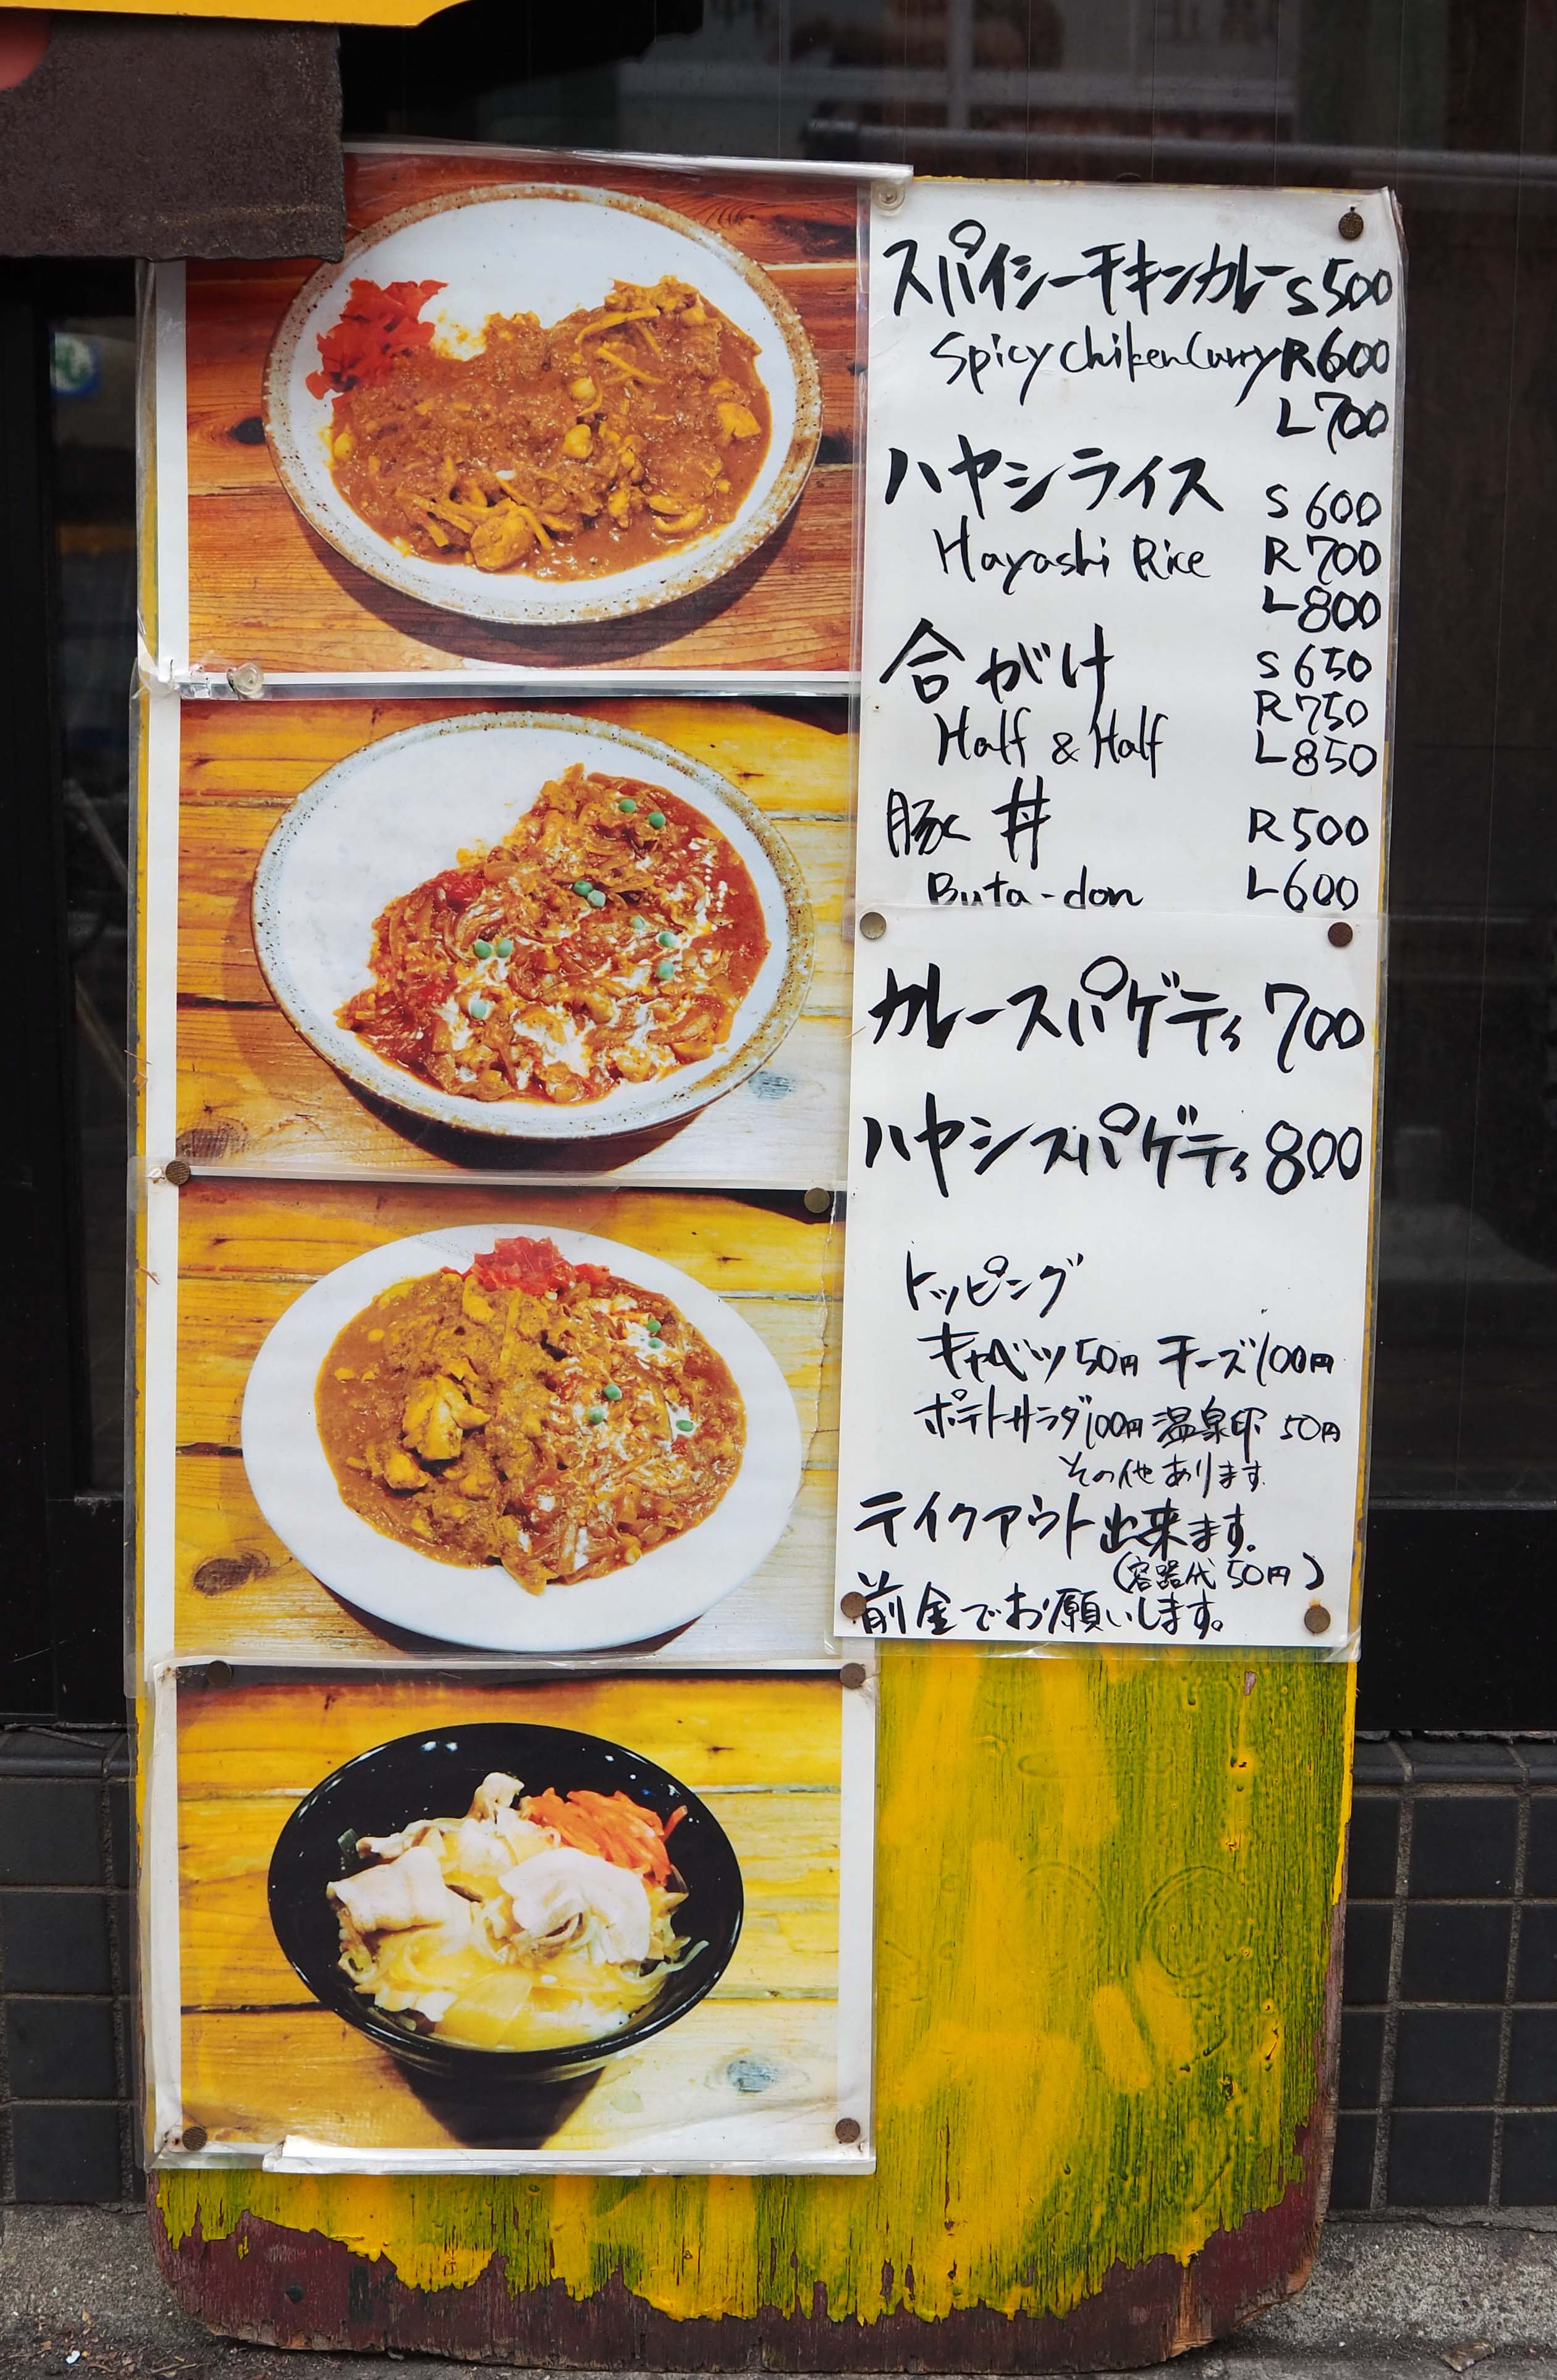 スパイシーチキンカレー S 500
Spicy Chiken Curry R 600
L 700
ハヤシライス S 600
Hayashi Rice R 700
L 800
合がけ S 650
R 750
Half & Half L 850
豚丼 R 500
Buta-don L 600
カレースパゲティ 700
ハヤシスパゲティ 800
トッピング
キャベツ 50円 チーズ 100円
ポテトサラダ 100円 温泉卵 50円
その他あります
テイクアウト出来ます。
(容器代 50円)
前金でお願いします。